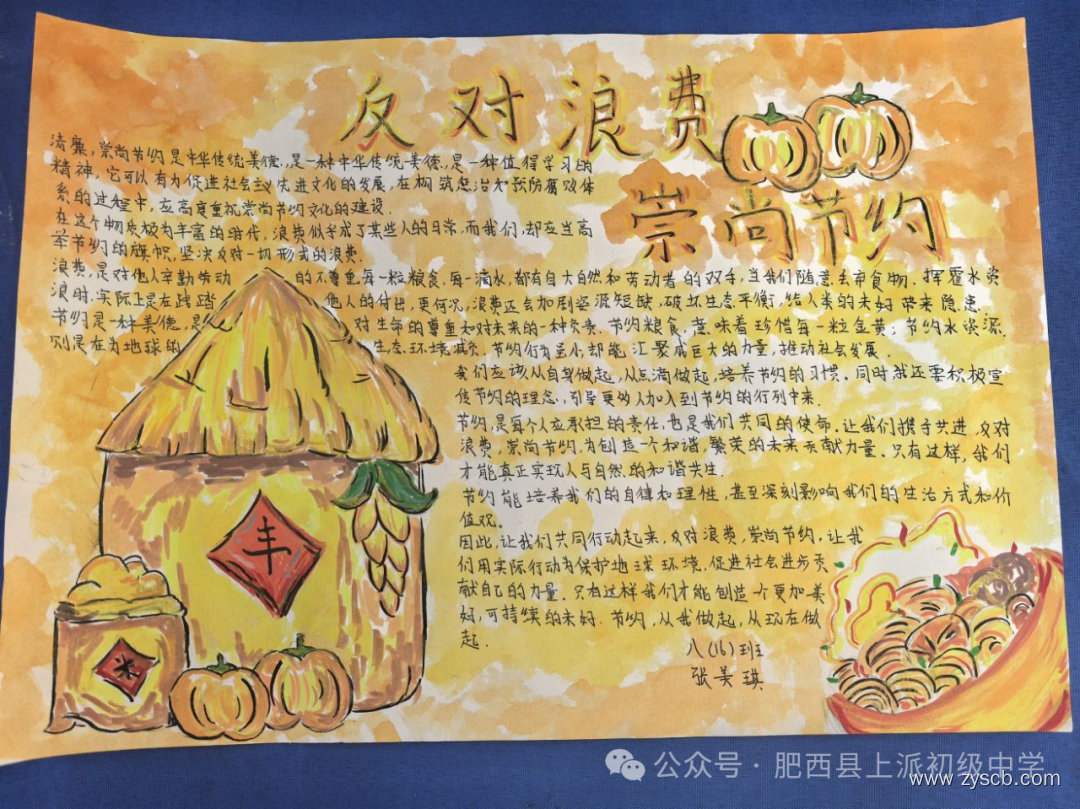 反对浪费
崇尚节约
清廉,崇尚节约是中华传统美德,是一种中华传统美德,是一种值得学习的
精神,它可以有力促进社会主义先进文化的发展,在构筑惩治和预防腐败体
系的过程中,应高度重视崇尚节约文化的建设.
在这个物质极为丰富的时代,浪费似乎成了某些人的日常,而我们,却应当高
举节约的旗帜,坚决反对一切形式的浪费.
浪费,是对他人辛勤劳动的不尊重,每一粒粮食,每一滴水,都有自大自然和劳动者的双手,当我们随意丢弃食物,挥霍水资
浪时,实际上是在践踏他人的付出,更何况,浪费还会加剧资源短缺,破坏生态平衡,给人类的未好带来隐患.
节约是一种美德,是对生命的尊重和对未来的一种负责.节约粮食,意味着珍惜每一粒金黄;节约水资源,
则是在为地球的生态环境减负,节约行为虽小,却能汇聚成巨大的力量,推动社会发展.
我们应该从自身做起,从点滴做起,培养节约的习惯.同时我还要积极宣
传节约的理念,引导更多人加入到节约的行列中来.
节约,是每个人应承担的责任,也是我们共同的使命.让我们携手共进,反对
浪费,崇尚节约,为创造一个和谐,繁荣的未来贡献力量.只有这样,我们
才能真正实现人与自然的和谐共生.
节约能培养我们的自律和理性,甚至深刻影响我们的生活方式和价
值观。
因此,让我们共同行动起来,反对浪费,崇尚节约,让我
们用实际行动为保护地球环境,促进社会进步贡
献自己的力量.只有这样我们才能创造一个更加美
好,可持续的未好.节约,从我做起,从现在做
起.
八(16)班
张美琪
丰
米
公众号·肥西县上派初级中学
www.zyscb.com